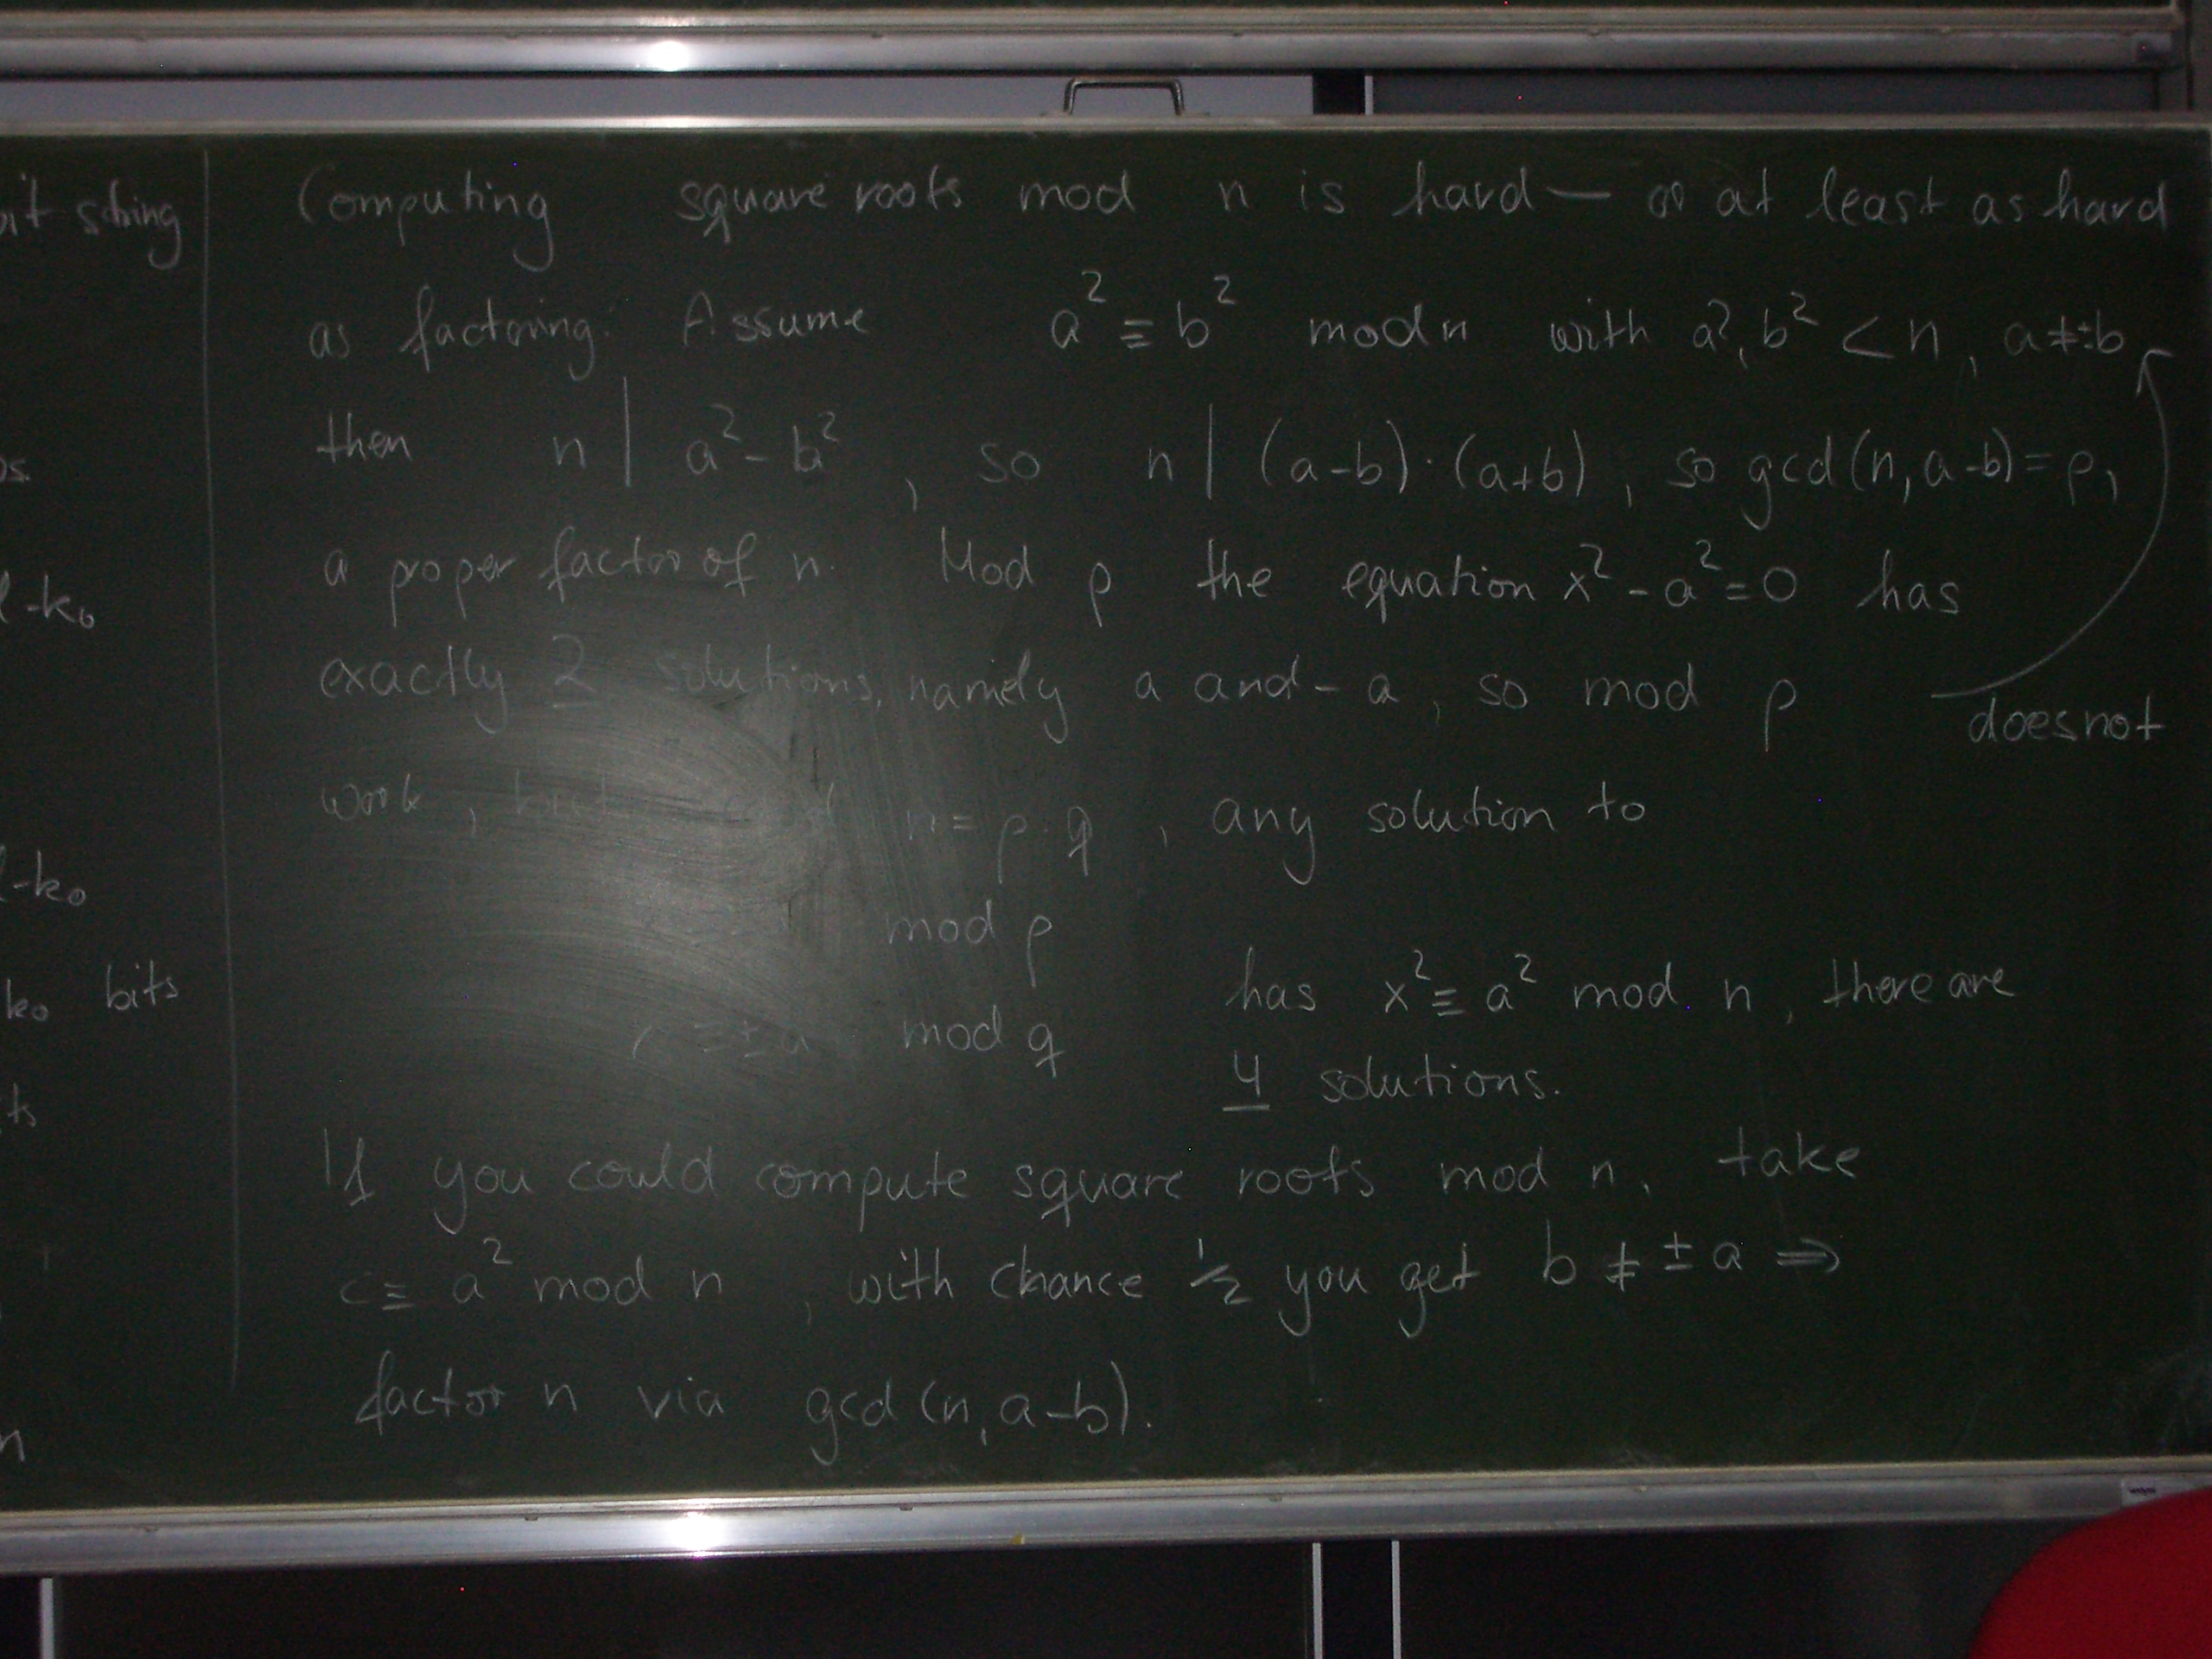 it string
os
l-k₀
l-k₀
k₀ bits
ts
n
Computing square roots mod n is hard — or at least as hard
as factoring. Assume a² ≡ b² mod n with a², b² < n, a ≠ ±b
then n | a² - b², so n | (a-b)·(a+b), so gcd(n, a-b) = p,
a proper factor of n. Mod p the equation x² - a² = 0 has
exactly 2 solutions, namely a and -a, so mod p does not
work, but n = p·q, any solution to
mod p
≡ ± a mod q
has x² ≡ a² mod n, there are
4 solutions.
If you could compute square roots mod n, take
c ≡ a² mod n, with chance 1/2 you get b ≠ ± a ⇒
factor n via gcd(n, a-b).